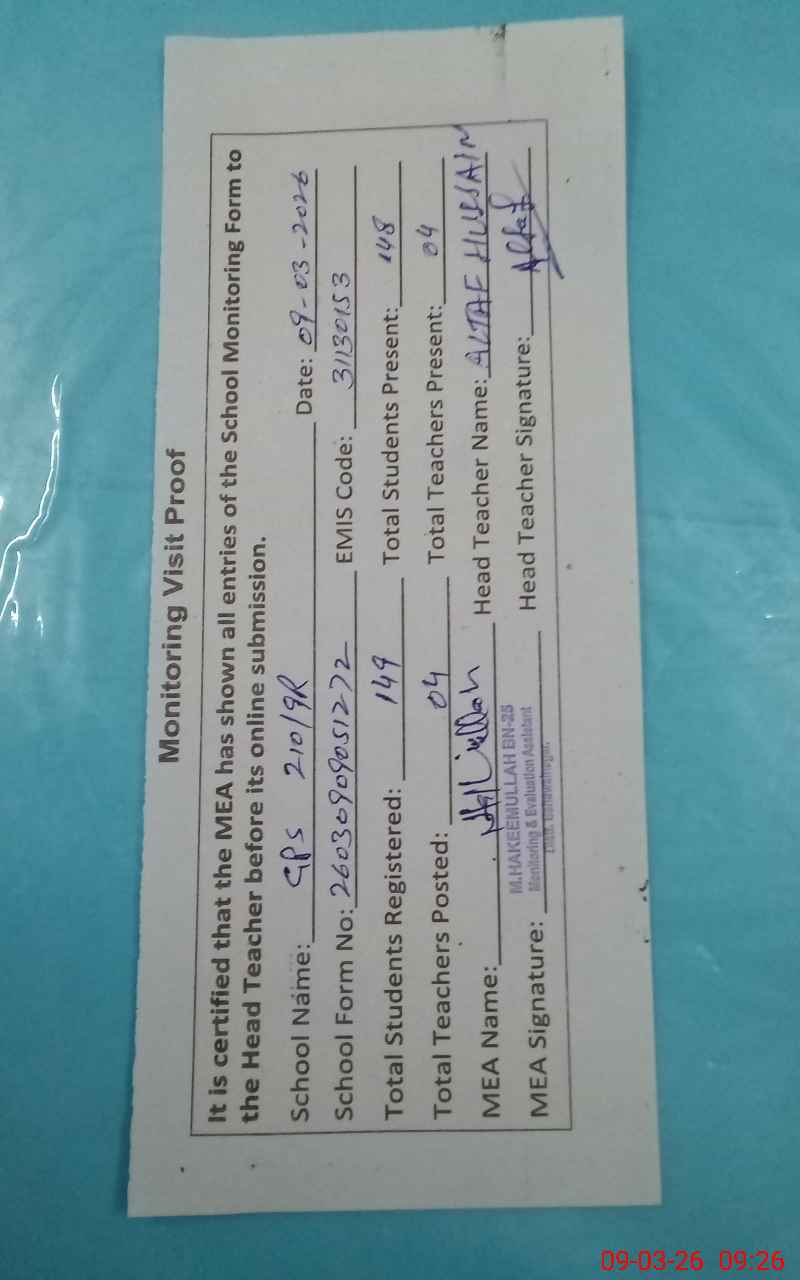 Monitoring Visit Proof
It is certified that the MEA has shown all entries of the School Monitoring Form to
the Head Teacher before its online submission.
School Name: GPS 210/9R Date: 09-03-2026
School Form No: 26030909051272 EMIS Code: 31130153
Total Students Registered: 149 Total Students Present: 148
Total Teachers Posted: 04 Total Teachers Present: 04
MEA Name: Head Teacher Name: ALTAF HUSSAIN
M.HAKEEMULLAH BN-25
Monitoring & Evaluation Assistant
MEA Signature: Head Teacher Signature: Altaf
09-03-26 09:26